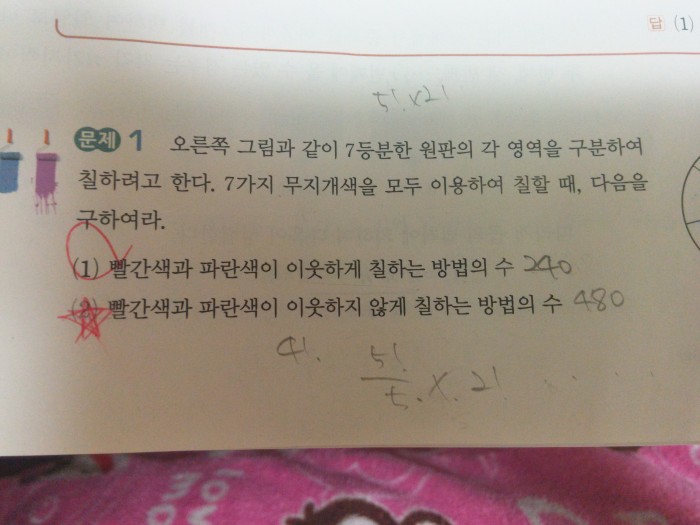 답 (1)
5! × 2!
문제 1 오른쪽 그림과 같이 7등분한 원판의 각 영역을 구분하여
칠하려고 한다. 7가지 무지개색을 모두 이용하여 칠할 때, 다음을
구하여라.
(1) 빨간색과 파란색이 이웃하게 칠하는 방법의 수 240
(2) 빨간색과 파란색이 이웃하지 않게 칠하는 방법의 수 480
4!. 5!/5. ×. 2!